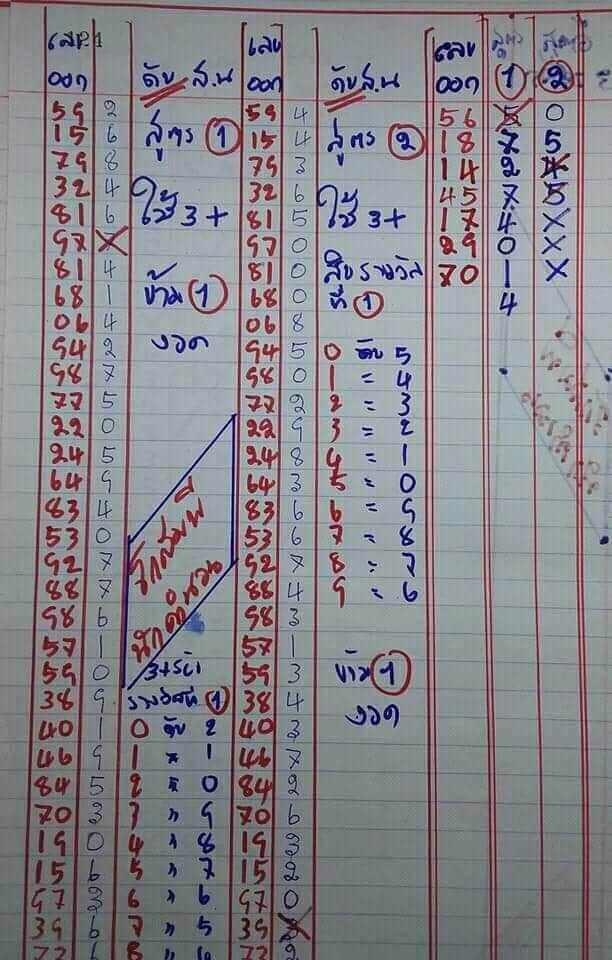 เลข ออก ดับ ส.น เลข ออก ดับ ส.น เลข ออก สูตร 1 2
59 2 สูตร 1 59 4 สูตร 2 56 5 0
15 6 15 4 18 7 5
79 8 79 3 14 2 4
32 4 ใช้ 3+ 32 6 ใช้ 3+ 45 7 5
81 6 81 5 17 4 X
97 97 0 29 0 X
81 4 ข้าม 1 81 0 สิบรางวัล 70 1 X
68 1 68 0 ที่ 1 4
06 4 งวด 06 8
94 2 94 5 0 ดับ 5
98 7 98 0 1 = 4
77 5 77 2 2 = 3
22 0 22 9 3 = 2
24 5 24 8 4 = 1
64 9 64 3 5 = 0
83 4 83 6 6 = 9
53 0 53 6 7 = 8
92 7 92 7 8 = 7
88 7 88 4 9 = 6
98 6 98 3
57 1 57 1
59 0 59 3 ข้าม 1
38 9 รางวัลที่ 1 38 4 งวด
40 1 0 ดับ 2 40 3
46 9 1 " 1 46 7
84 5 2 " 0 84 2
70 3 3 " 9 70 6
19 0 4 " 8 19 3
15 6 5 " 7 15 2
97 3 6 " 6 97 0
39 6 7 " 5 39